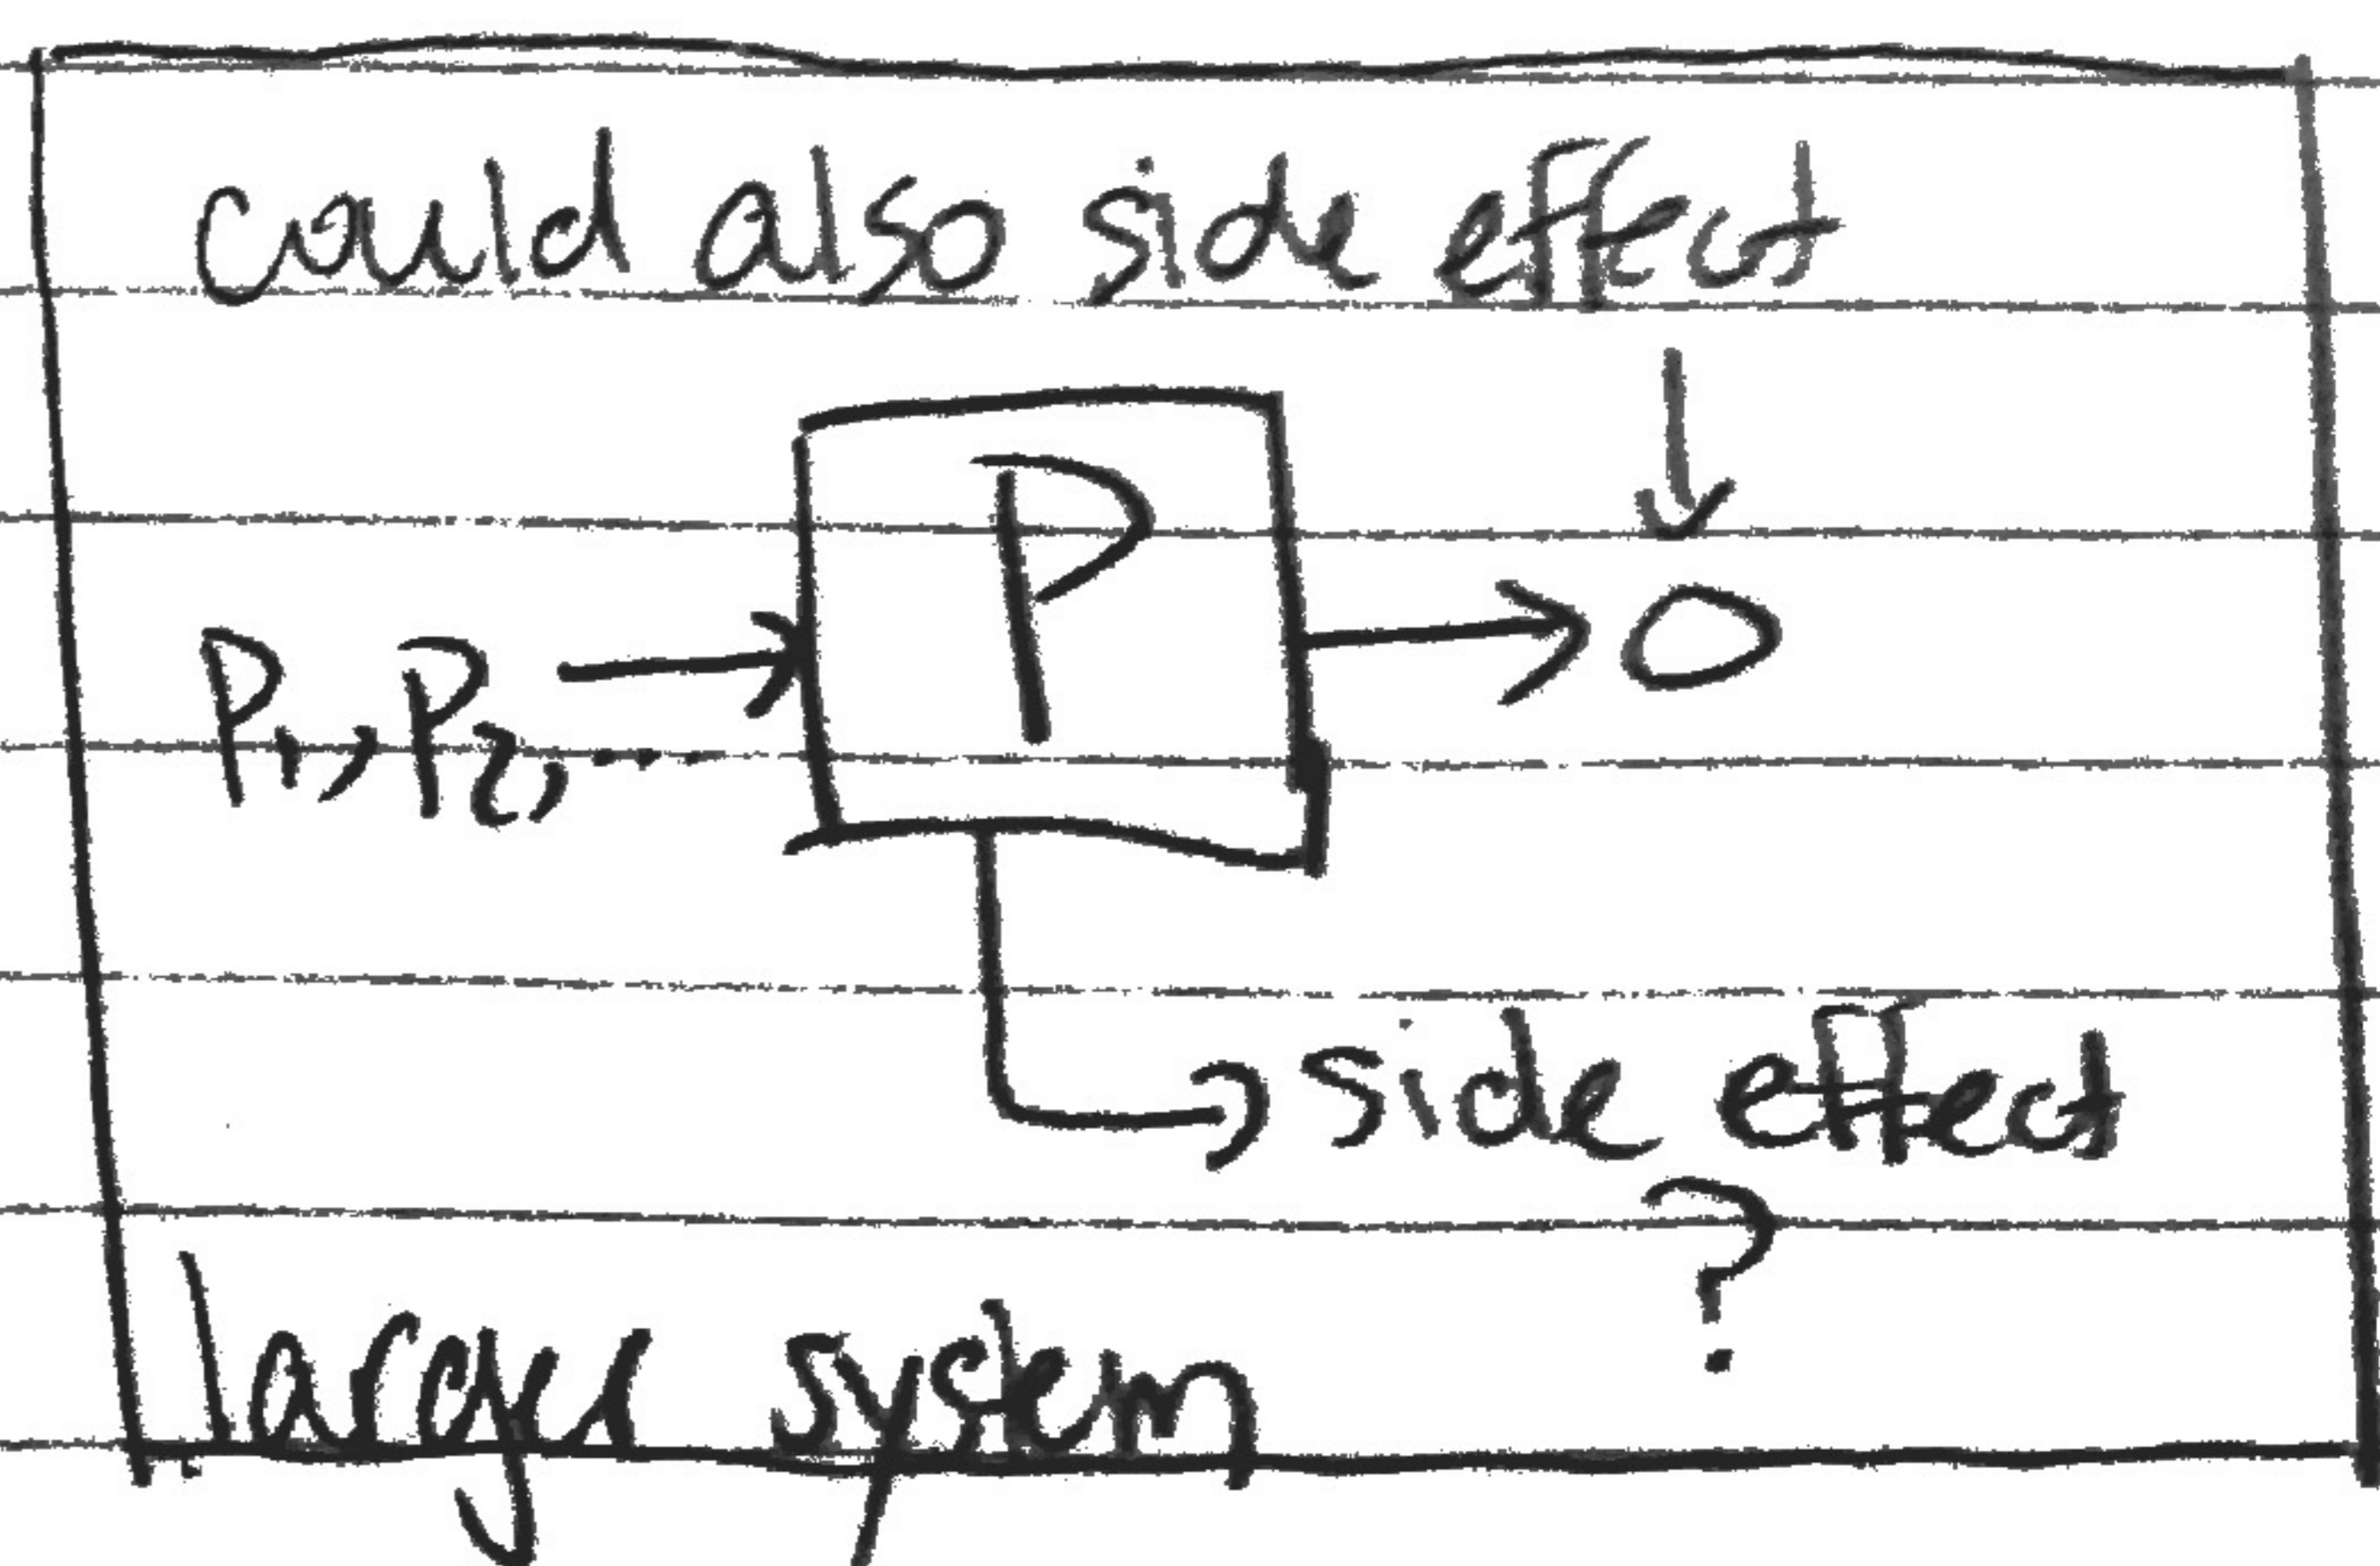 could also side effect
P
P1, P2, ...
O
side effect
?
larger system